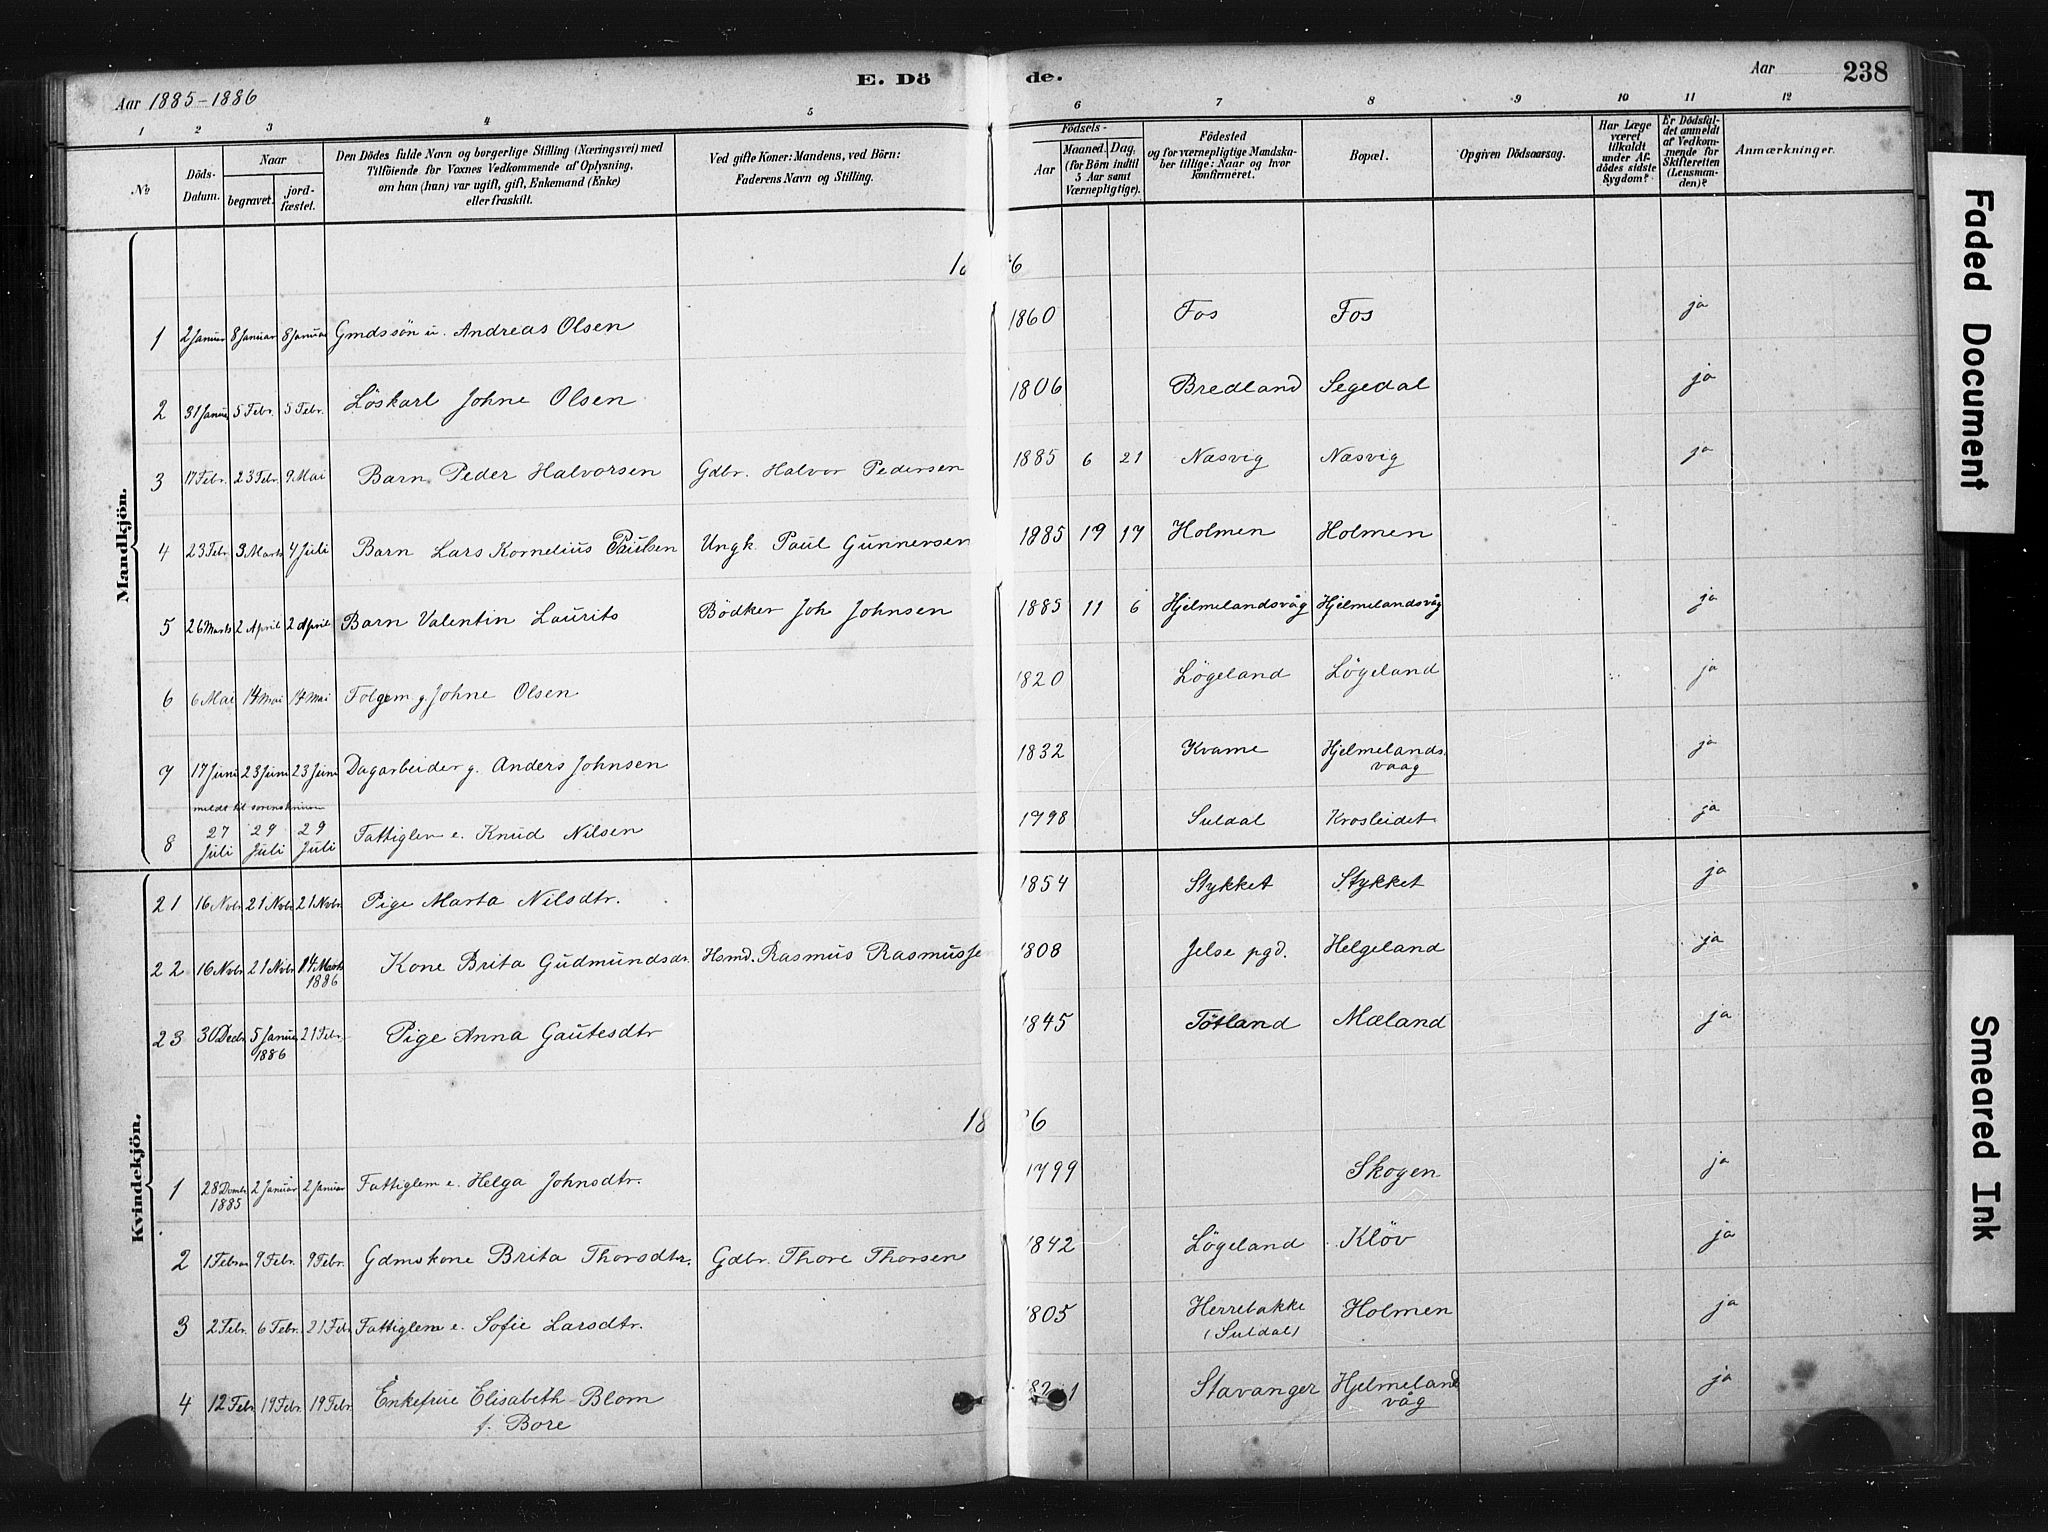 E. Döde.
Aar 1885-1886
Aar
238
1 2 3 4 5 6 7 8 9 10 11 12
No
Döds-Datum.
Naar
begravet.
jord-fæstet.
Den Dödes fulde Navn og borgerlige Stilling (Næringsvei) med
Tilföiende for Voxnes Vedkommende af Oplysning,
om han (hun) var ugift, gift, Enkemand (Enke)
eller fraskilt.
Ved gifte Koner: Mandens, ved Börn:
Faderens Navn og Stilling.
Födsels-
Aar
Maaned. Dag.
(for Börn indtil
5 Aar samt
Værnepligtige).
Födested
og for værnepligtige Mandska-
ber tillige: Naar og hvor
konfirmeret.
Bopæl.
Opgiven Dödsaarsag.
Har Læge
været
tilkaldt
under Af-
dödes sidste
Sygdom?
Er Dödsfal-
det anmeldt
af Vedkom-
mende for
Skifteretten
(Lensman-
den)?
Anmærkninger.
Mandkjön.
18 6
1 2 Januar 8 Januar 8 Januar Gmdssön u. Andreas Olsen 1860 Fos Fos ja
2 31 Januar 5 Febr. 5 Febr. Löskarl Johne Olsen 1806 Bredland Segedal ja
3 17 Febr. 23 Febr. 9 Mai Barn Peder Halvorsen Gdbr. Halvor Pedersen 1885 6 21 Næsvig Næsvig ja
4 23 Febr. 3 Marts 4 Juli Barn Lars Kornelius Paulsen Ungk. Paul Gunnersen 1885 19 17 Holmen Holmen
5 26 Marts 2 April 2 April Barn Valentin Laurits Bödker Joh Johnsen 1885 11 6 Hjelmelandsvåg Hjelmelandsvåg ja
6 6 Mai 14 Mai 14 Mai Folgem. g. Johne Olsen 1820 Lögeland Lögeland ja
7 17 Juni 23 Juni 23 Juni Dagarbeider g. Anders Johnsen 1832 Kvame Hjelmelands-
vaag ja
meldt til sorenskriveren
8 27 Juli 29 Juli 29 Juli Fattiglem e. Knud Nilsen 1798 Suldal Krosleidet ja
Kvindekjön.
21 16 Nvbr 21 Nvbr 21 Nvbr. Pige Marta Nilsdtr. 1854 Stykket Stykket ja
22 16 Nvbr. 21 Nvbr. 14 Marts
1886 Kone Brita Gudmundsdr. Hsmd. Rasmus Rasmussen 1808 Jelse pgd. Helgeland ja
23 30 Decbr. 5 Januar
1886 21 Febr. Pige Anna Gautesdtr 1845 Tötland Mæland ja
18 6
1 28 Dcmbr
1885 2 Januar 2 Januar Fattiglem e. Helga Johnsdtr. 1799 Skogen ja
2 1 Februar 9 Febr. 9 Febr. Gdmskone Brita Thorsdtr. Gdbr. Thore Thorsen 1842 Lögeland Klöv ja
3 2 Febr. 6 Febr. 21 Febr Fattiglem e. Sofie Larsdtr. 1805 Herrebakke
(Suldal) Holmen ja
4 12 Febr. 19 Febr. 19 Febr. Enkefrue Elisabeth Blom
f. Bore Stavanger Hjelmeland
våg ja
Faded Document
Smeared Ink